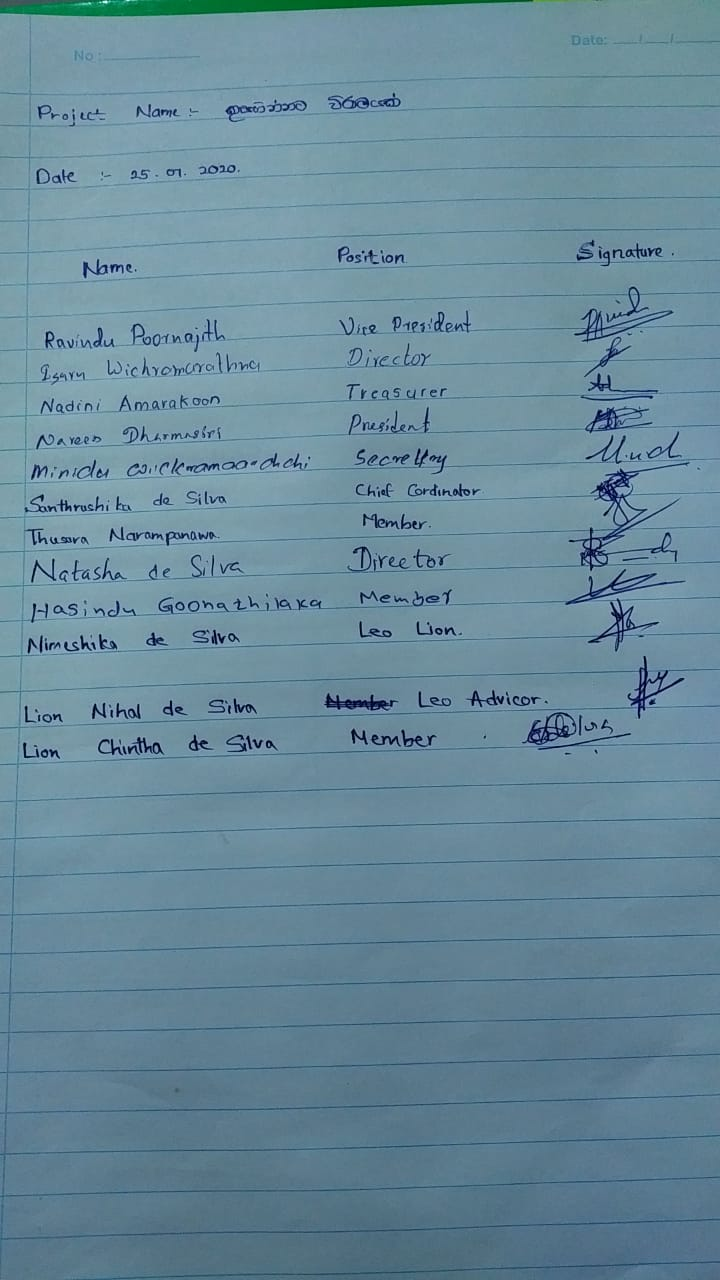 No :
Date: / /
Project Name :-
Date :- 25 . 01. 2020.
Name. Position Signature .
Ravindu Poornajith Vice President
Isaru Wichromarathna Director
Nadini Amarakoon Treasurer
Naveen Dharmasiri President
Minidu Secretary
Santhrushika de Silva Chief Cordinator
Thusara Narampanawa. Member.
Natasha de Silva Director
Hasindu Goonathilaka Member
Nimeshika de Silva Leo Lion.
Lion Nihal de Silva Member Leo Advicor.
Lion Chintha de Silva Member